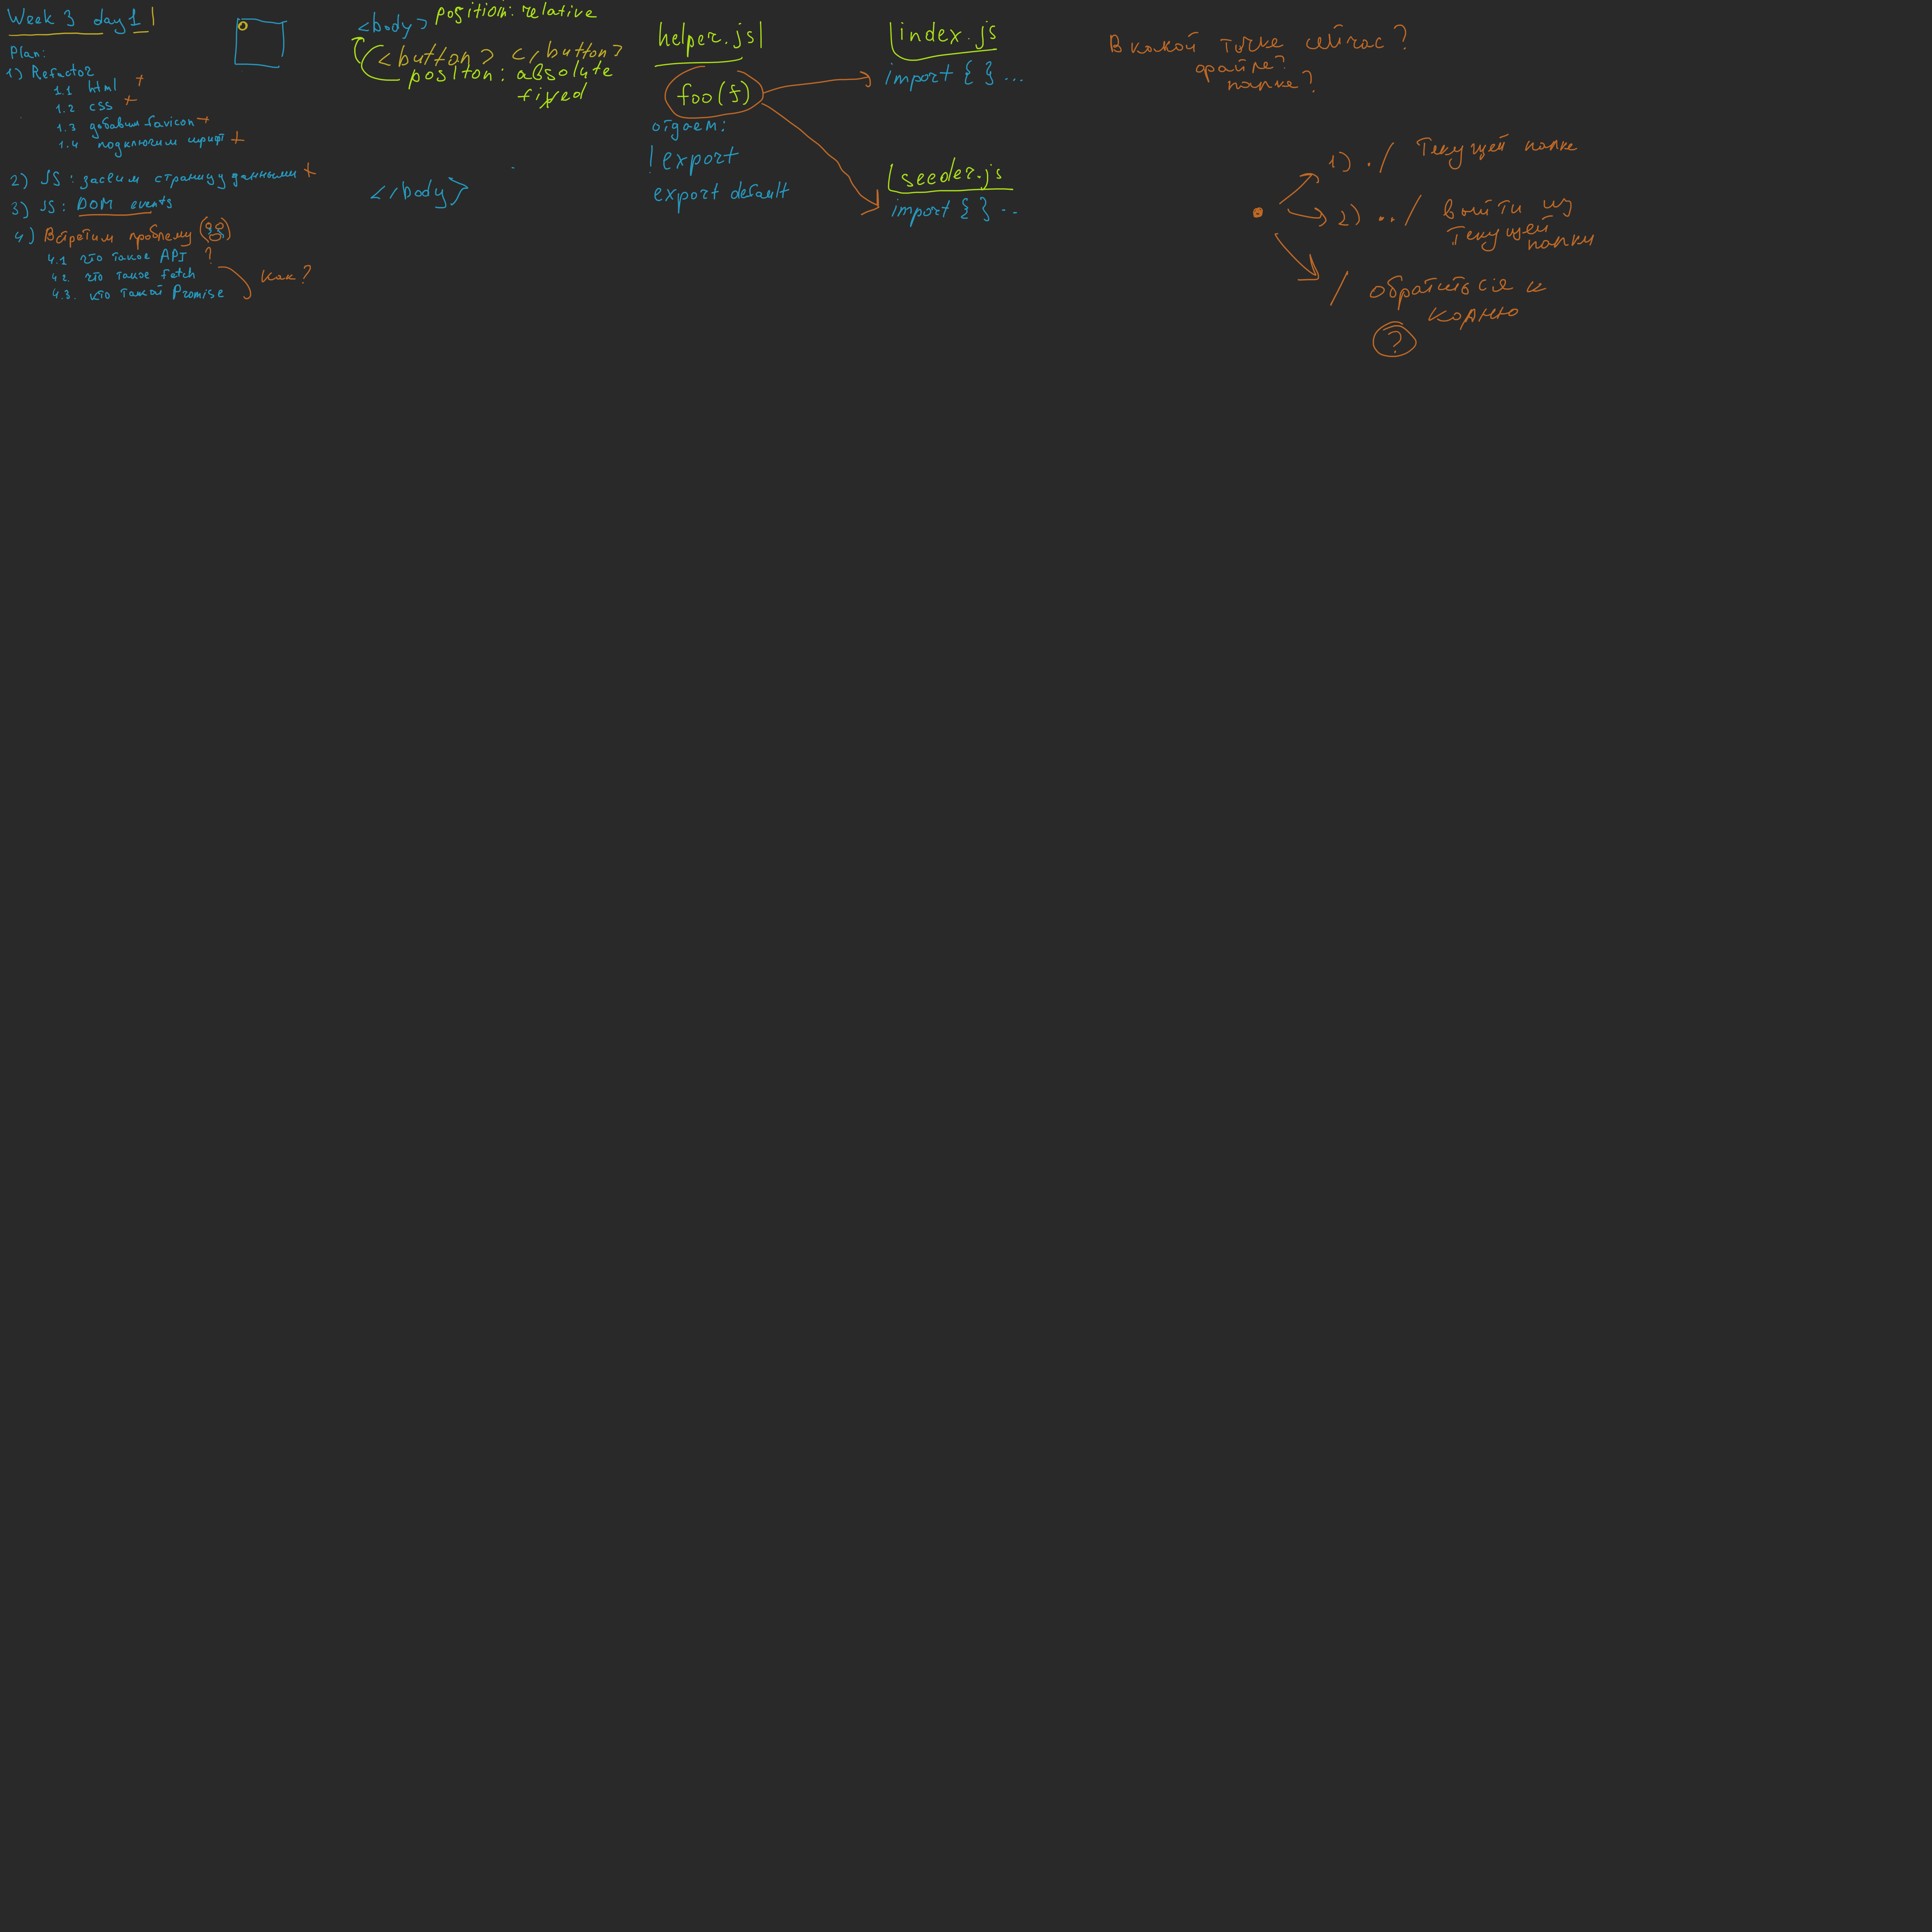 Week 3 day 1
Plan:
1) Refactor
1.1 html +
1.2 css +
1.3 добавим favicon +
1.4 подключим шрифт +
2) JS: засеим страницу данными +
3) JS: DOM events
4) Встретим проблему
4.1 что такое API ?
4.2. что такое fetch
4.3. кто такой Promise
как?
<body> position: relative
<button> </button>
positon: absolute
fixed
</body>
helper.js
foo(f)
отдаем:
! export
export default
index.js
import { } ...
seeder.js
import { } ..
В какой точке сейчас?
файле?
папке?
1) ./ текущей папке
2) ../ выйти из
текущей
папки
/ обратиться к
корню
?